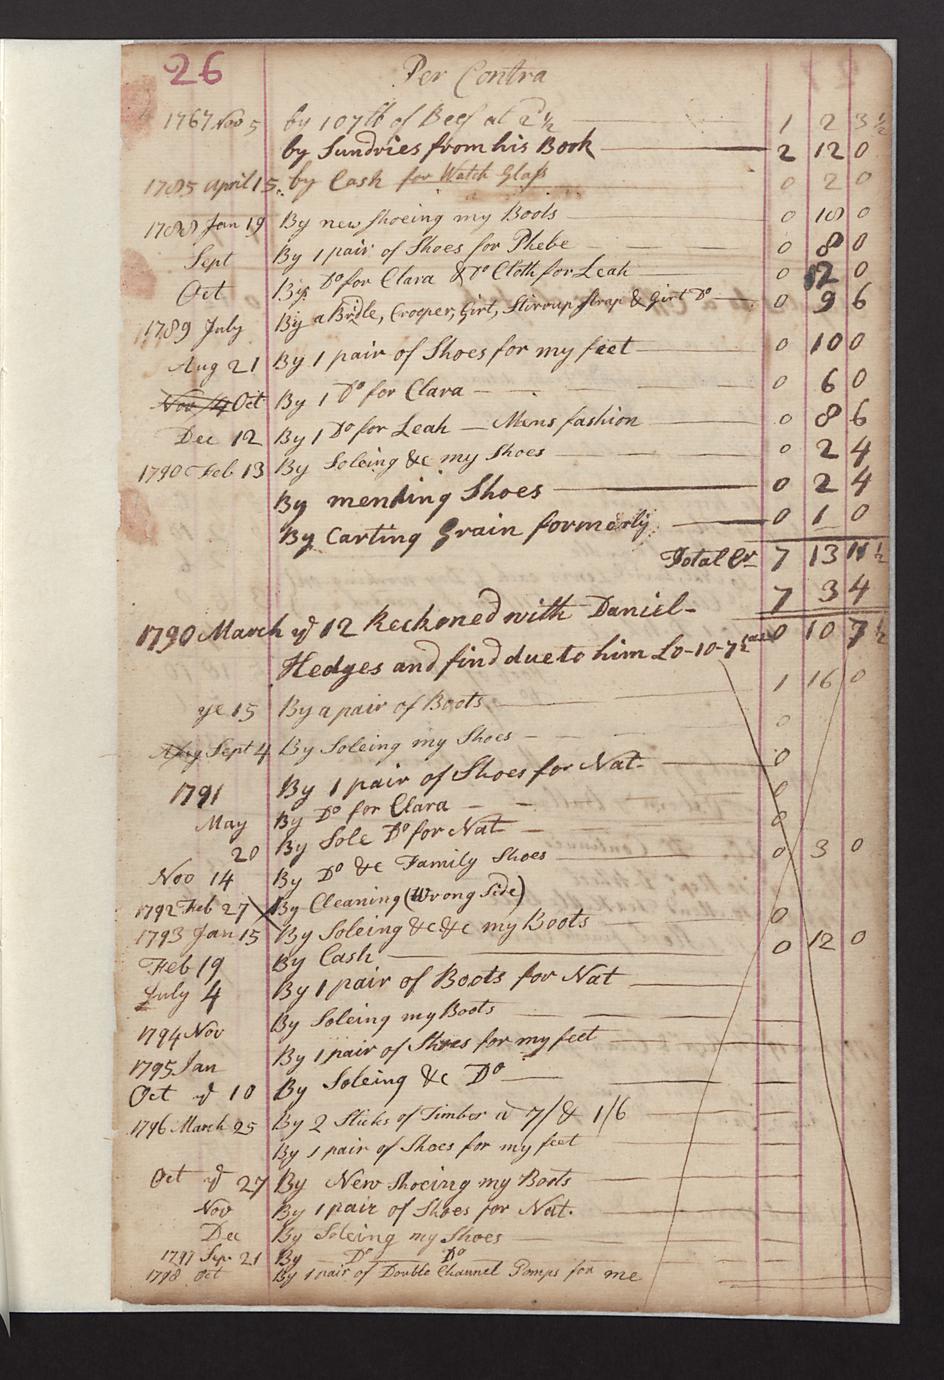 26 Per Contra
1767 Nov 5 by 107 lb of Beef at 2 1/2 1 2 3 1/2
by Sundries from his Book 2 12 0
1785 April 15 by Cash for Watch Glass 0 2 0
1788 Jan 19 By new shoeing my Boots 0 18 0
Sept By 1 pair of Shoes for Phebe 0 8 0
Oct By Do for Clara & Do Cloth for Leah 0 12 0
1789 July By a Bridle, Crooper, Girt, Stiroup Strap & Girt Do 0 9 6
Aug 21 By 1 pair of Shoes for my feet 0 10 0
Nov 4 Oct By 1 Do for Clara 0 6 0
Dec 12 By 1 Do for Leah - Mens fashion 0 8 6
1790 Feb 13 By Soleing &c my Shoes 0 2 4
By mending Shoes 0 2 4
By Carting Grain formerly 0 1 0
Total Cr 7 13 11 1/2
7 3 4
1790 March ye 12 Reckoned with Daniel- 0 10 7 1/2
Hedges and find due to him £0-10-7 1/2
ye 15 By a pair of Boots 1 16 0
Aug Sept 4 By Soleing my Shoes 0
1791 By 1 pair of Shoes for Nat. 0
May By Do for Clara 0
20 By Sole Do for Nat 0
Nov 14 By Do &c Family Shoes 0 3 0
1792 Feb 27 By Cleaning (Wrong Side)
1793 Jan 15 By Soleing &c &c my Boots 0
Feb 19 By Cash 0 12 0
July 4 By 1 pair of Boots for Nat
1794 Nov By Soleing my Boots
1795 Jan By 1 pair of Shoes for my feet
Oct ye 10 By Soleing &c Do
1796 March 25 By 2 Sticks of Timber a 7/ & 1/6
By 1 pair of Shoes for my feet
Oct ye 27 By New Shoeing my Boots
Nov By 1 pair of Shoes for Nat.
Dec By Soleing my Shoes
1797 Sep. 21 By Do Do
1798 Oct By 1 pair of Double Channel Pomps for me